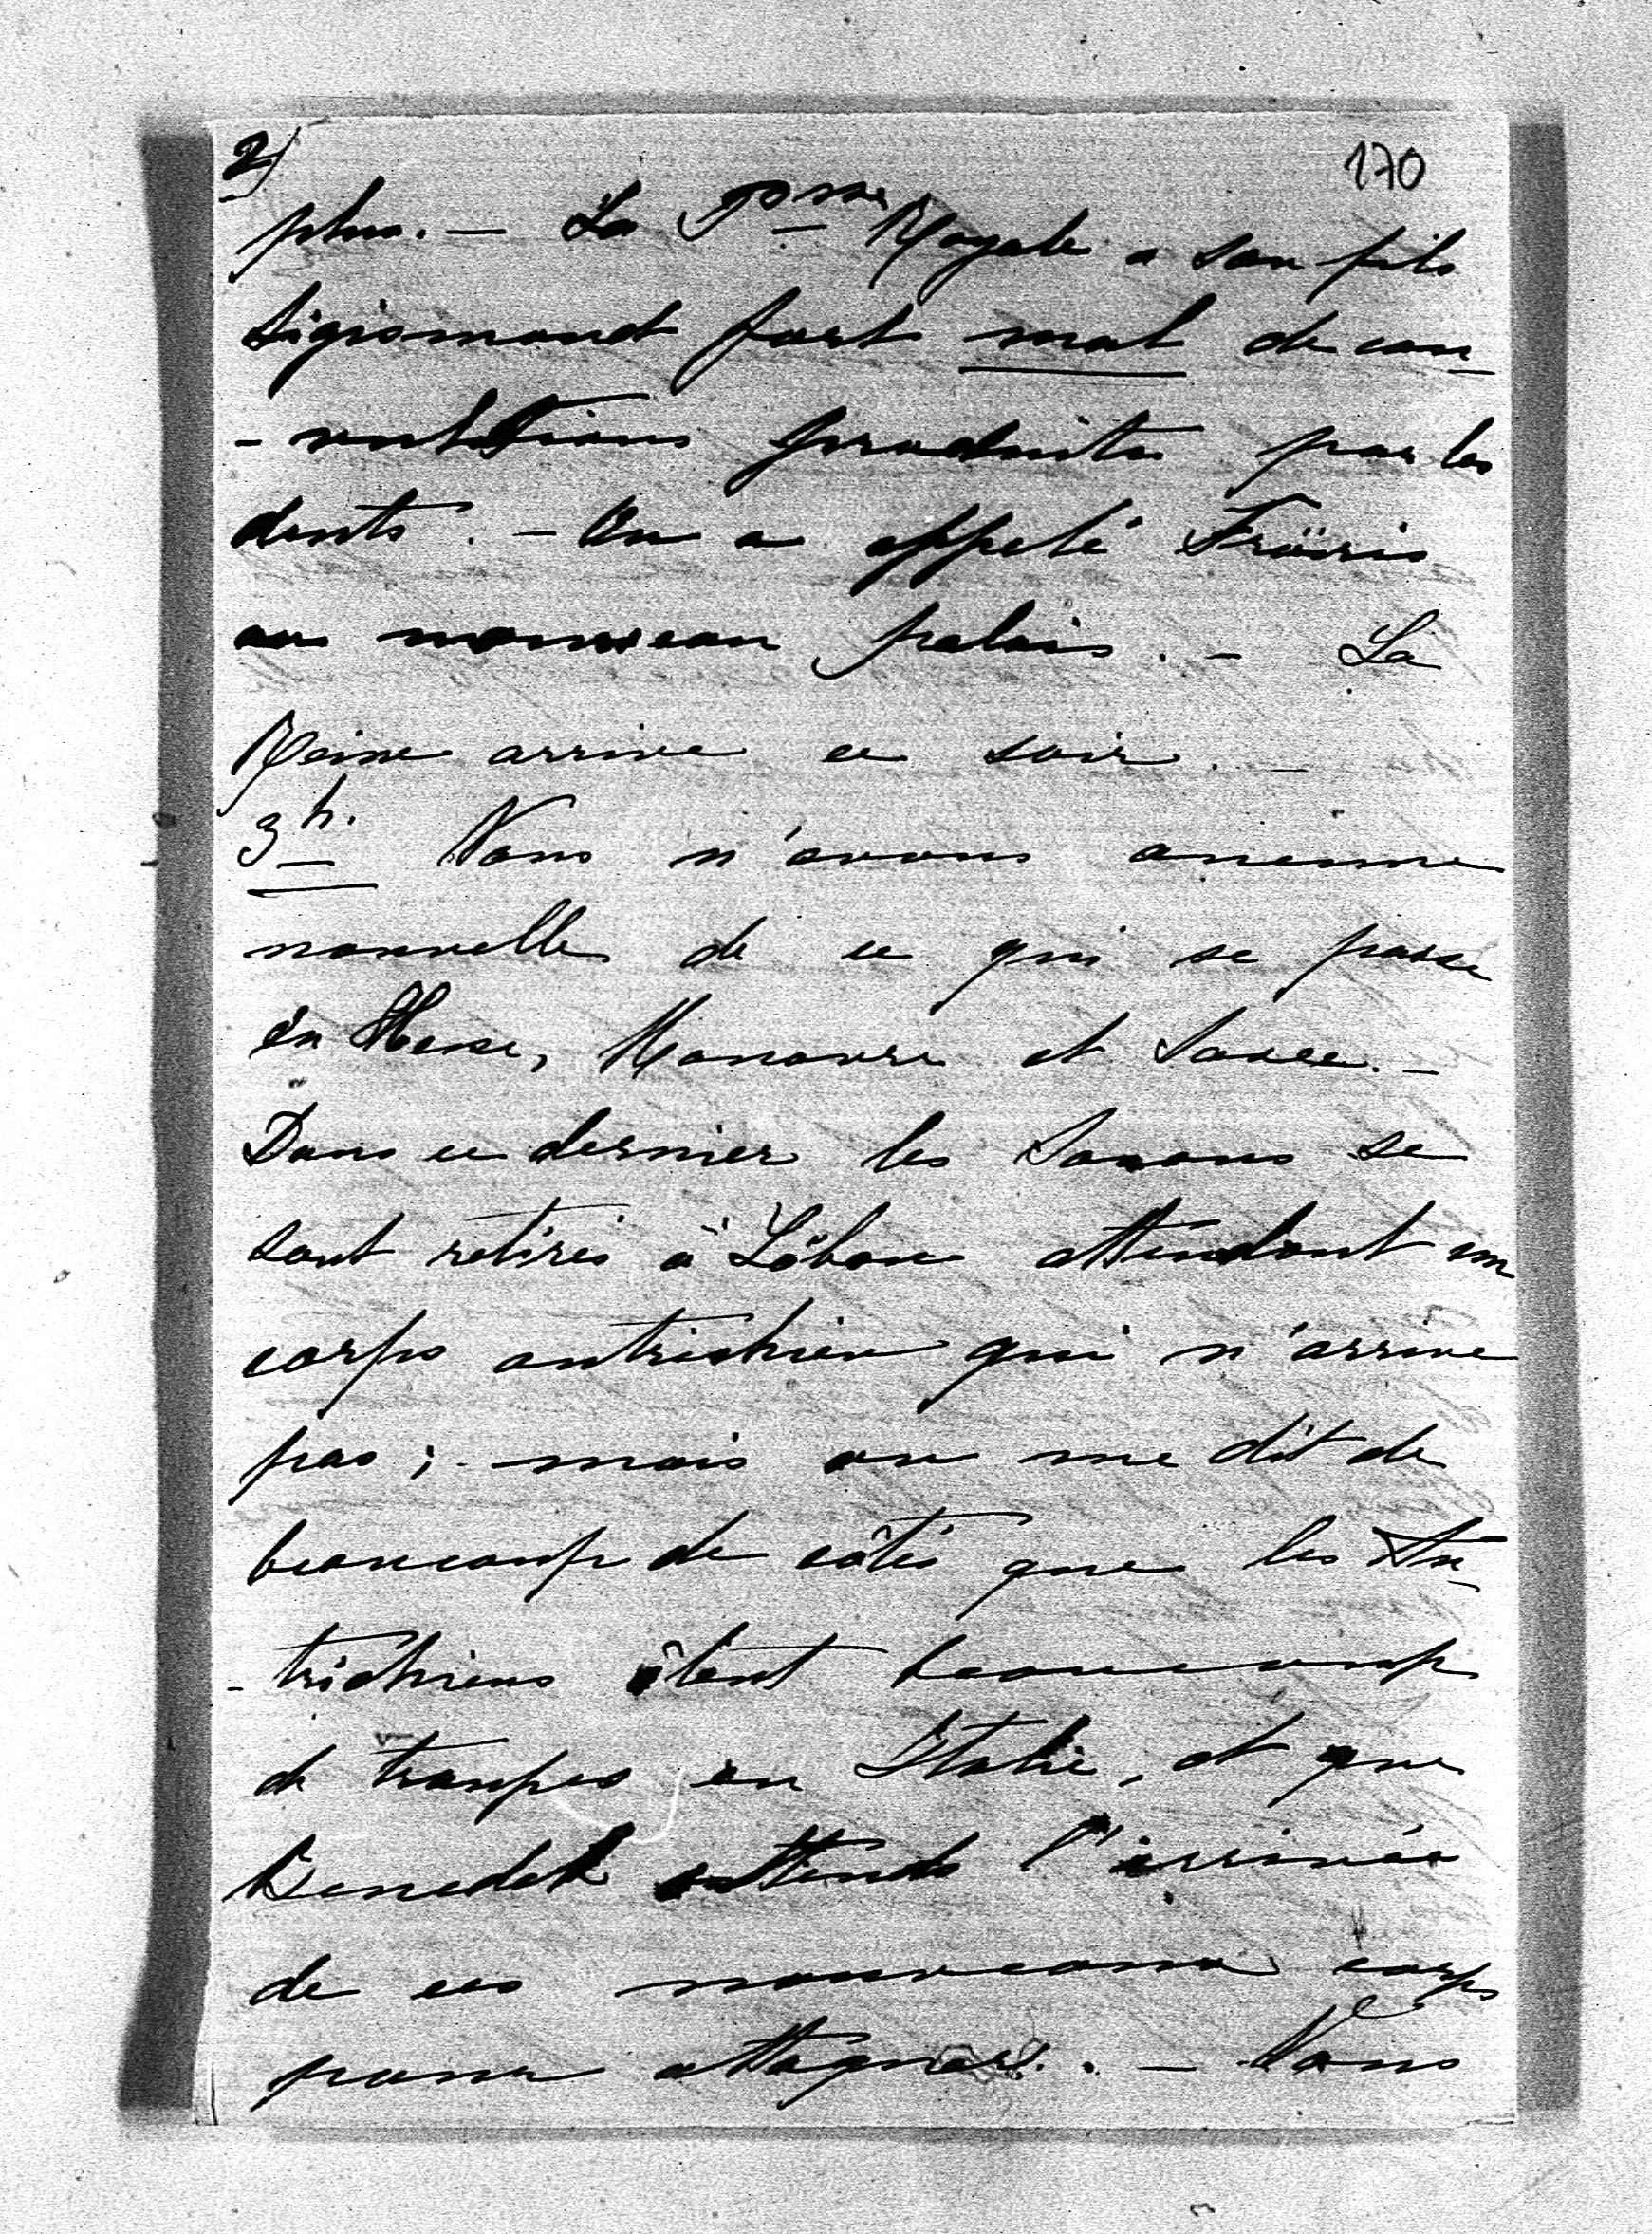 2)
170
plus. — La Psse Royale a son fils
Sigismond fort mal de con-
-vultions produites par les
dents. — On a appelé Fröiris
au nouveau palais. — La
Reine arrive ce soir. —
3h. Nous n'avons aucune
nouvelle de ce qui se passe
en Hesse, Hanovre et Saxe. —
Dans ce dernier les Saxons se
sont retirés à Löbau attendant un
corps autrichien qui n'arrive
pas; mais on me dit de
beaucoup de côtés que les Au-
-trichiens ôtent beaucoup
de troupes en Italie, et que
Benedek attends l'arrivée
de ces nouveaux corps
pour attaquer. — Nous